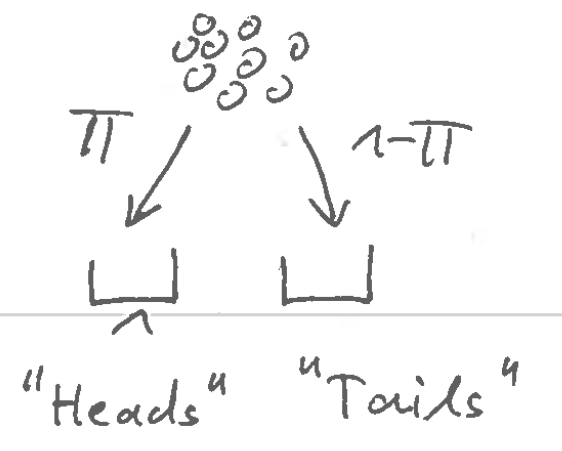 π 1-π
1
"Heads" "Tails"